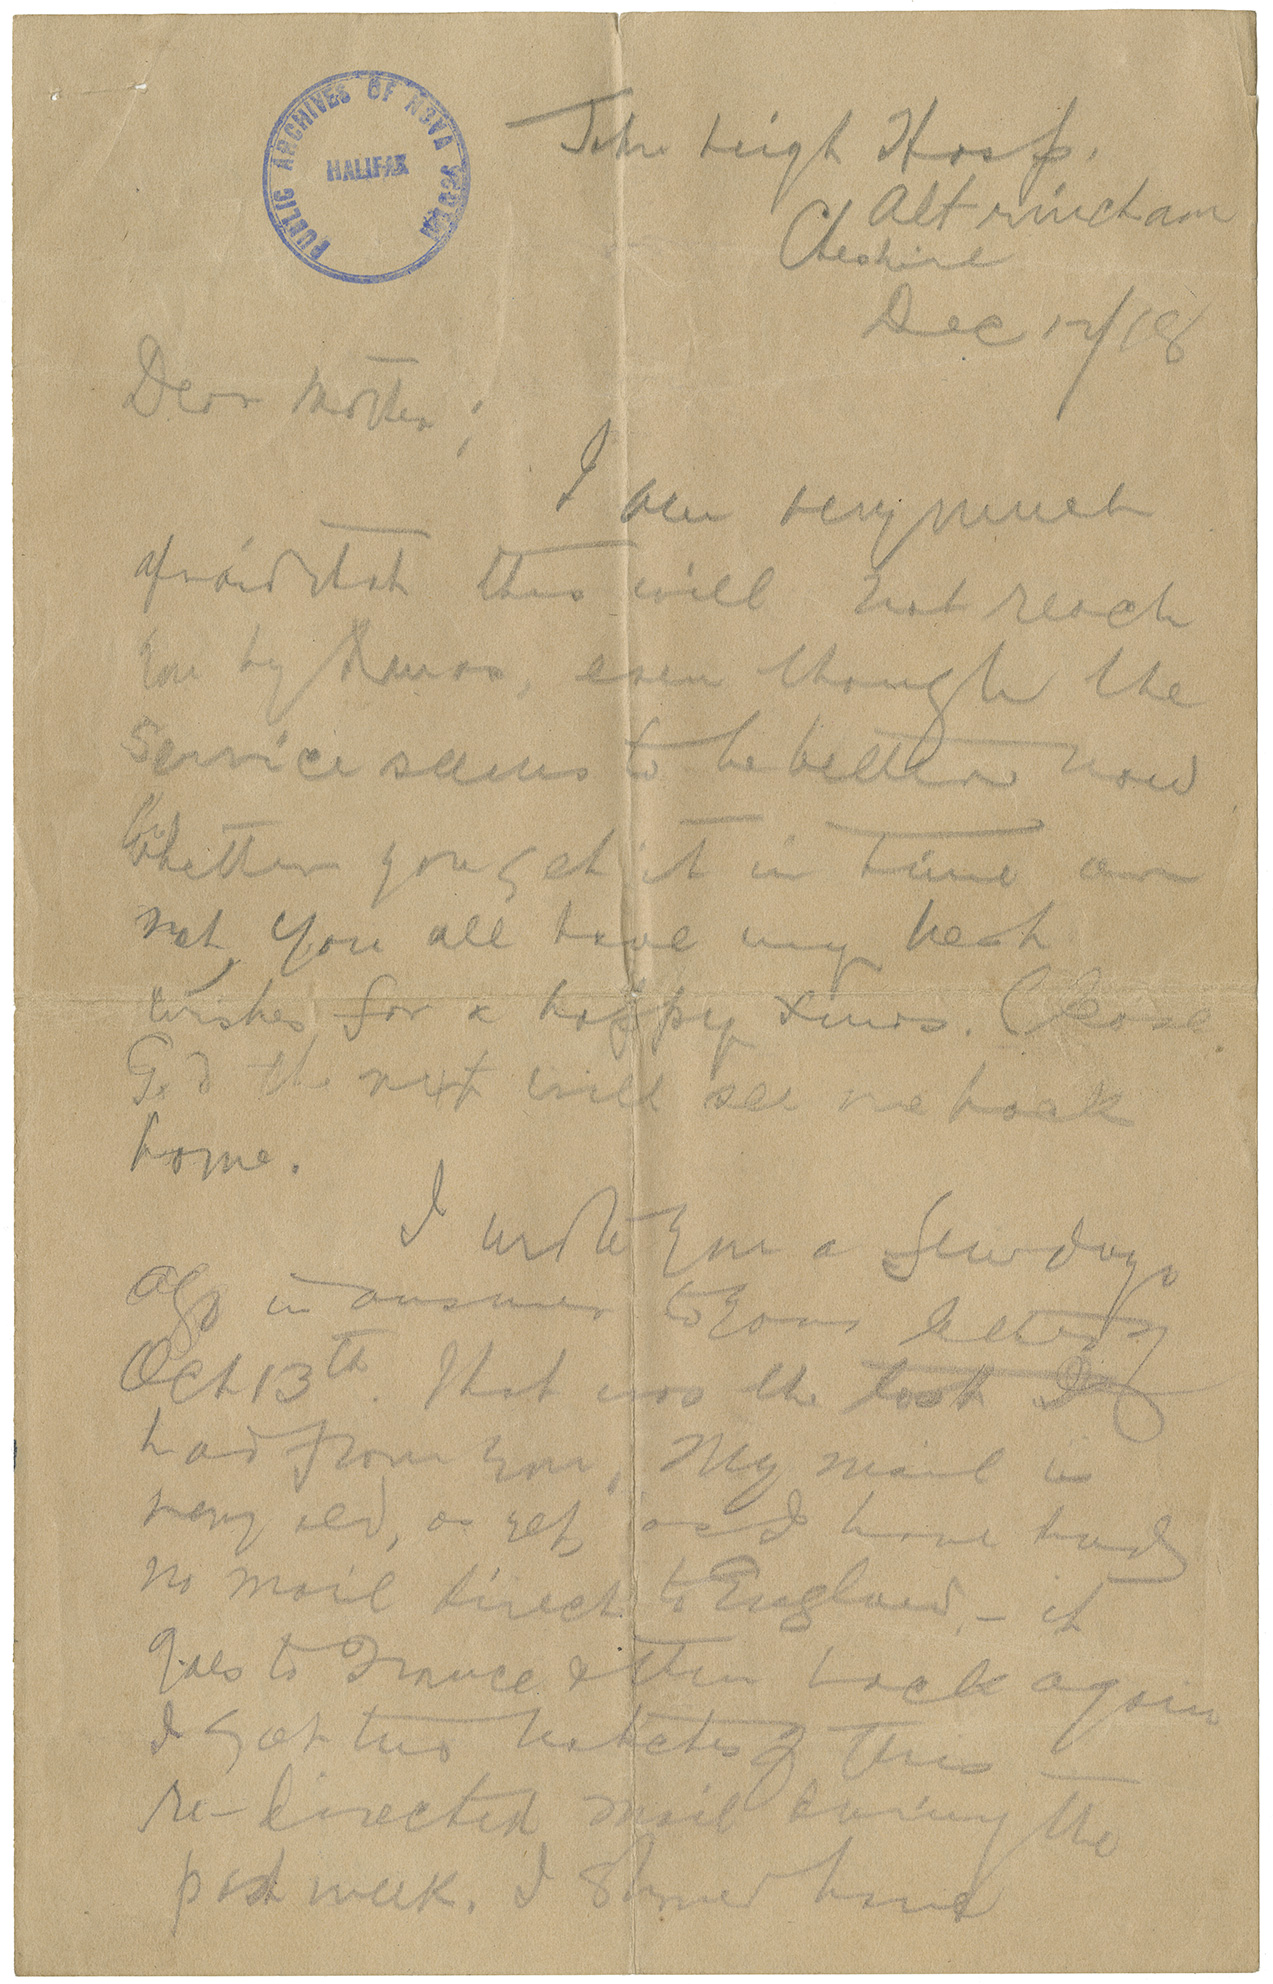 PUBLIC ARCHIVES OF NOVA SCOTIA
HALIFAX
John Leigh Hosp.
Altrincham
Cheshire
Dec 12/18
Dear Mother;
I am very much
afraid that this will not reach
you by Xmas, even though the
service seems to be better now
Whether you get it in time or
not, you all have my best
wishes for a happy Xmas. Please
God the next will see me back
home.
I wrote you a few days
ago in answer to your letter of
Oct 13th. That was the last I
had from you. My mail is
very old, as yet, as I have had
no mail direct to England, - it
goes to France & then back again
I got two batches of this
re-directed mail during the
past week. I should have